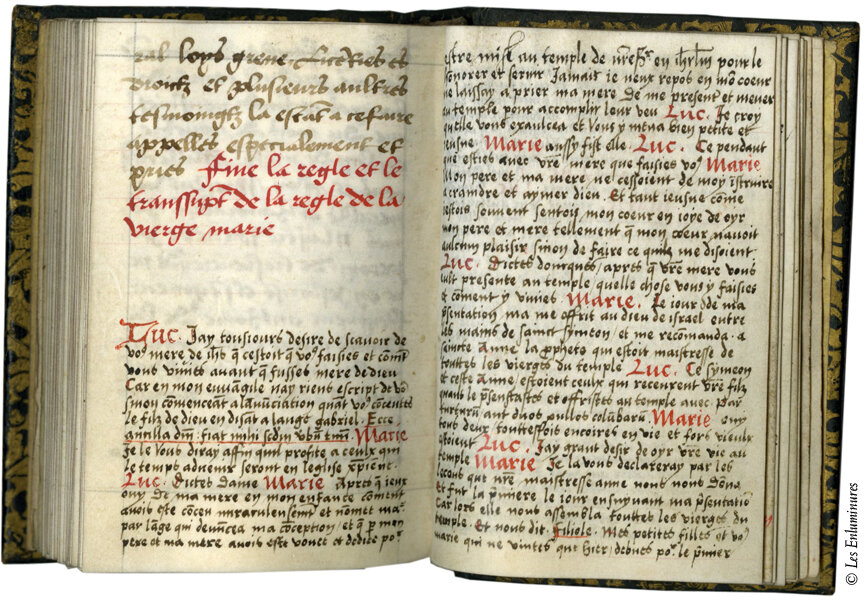 ral loys grene fictries et
droictz et plusieurs aultres
tesmoingtz la estãt a ce faire
appelles especialement et
pries Fine la regle et le
transsupt de la regle de la
vierge marie
Luc. Jay tousiours desire de scavoir de
vos mere de ihs q cestoit q vos faisies et comt
vous vivies avant q fusses mere de dieu
Car en mon euvãgile nay riens escript de vos
sinon comenceant a lanũciation quant vos cõceutes
le filz de dieu en disãt a lange gabriel. Ecce
ancilla dm. fiat mihi scdm vbũ tuũ. Marie
Je le vous diray affin quil profite a ceulx qui
le temps advenir seront en leglise xpiene.
Luc. Dictes dame Marie Apres q ieux
ouy de ma mere en mon enfance coment
avois este cõceu miraculeusemt et nomee marie
par lãge qui denuncea ma cõception / et q p mon
pere et ma mere avois este vouee et dediee por
estre mise au temple de nre sr en ihrlm pour le
honorer et servir Jamais ie neux repos en mõ coeur
ne laissay a prier ma mere de me presenter et mener
au temple pour accomplir leur veu Luc. Je croy
quelle vous exaulcea et vous y mena bien petite et
ieusne. Marie aussy fist elle. Luc. Ce pendant
que esties avec vre mere que faisies vos Marie
Mon pere et ma mere ne cessoient de moy istruire
a craindre et aymer dieu. Et tant ieusne come
iestois souvent sentois mon coeur en ioye de oyr
mon pere et mere tellement q mon coeur navoit
aulcun plaisir sinon de faire ce quilz me disoient
Luc. Dictes doncques / apres q vre mere vous
eult presente au temple quelle chose vous y faisies
et cõment y vivies. Marie. Le iour de ma
pñtation ma me offrit au dieu de israel entre
les mains de sainct symeon / et me recomanda a
saincte Anne la pphete qui estoit maistresse de
touttes les vierges du temple Luc. Ce symeon
et ceste Anne / estoient ceulx qui receurent vre filz
quant le pñtastes et offristes au temple avec par
turturũ aut duos pullos colũbarũ Marie ouy
tous deux touttesfois encoires en vie et fors vieulx
estoient Luc. Jay grant desir de oyr vre vie au
temple Marie Je la vous declareray par les
lecons que nre maistresse anne nous dõna
Et fut la pmiere le iour ensuyvant ma pñtatiõ
Car lors elle nous assembla touttes les vierges du
temple. Et nous dit. Filiole. Mes petites filles et vos
marie qui ne vintes que hier / debves por le pmier
© Les Enluminures